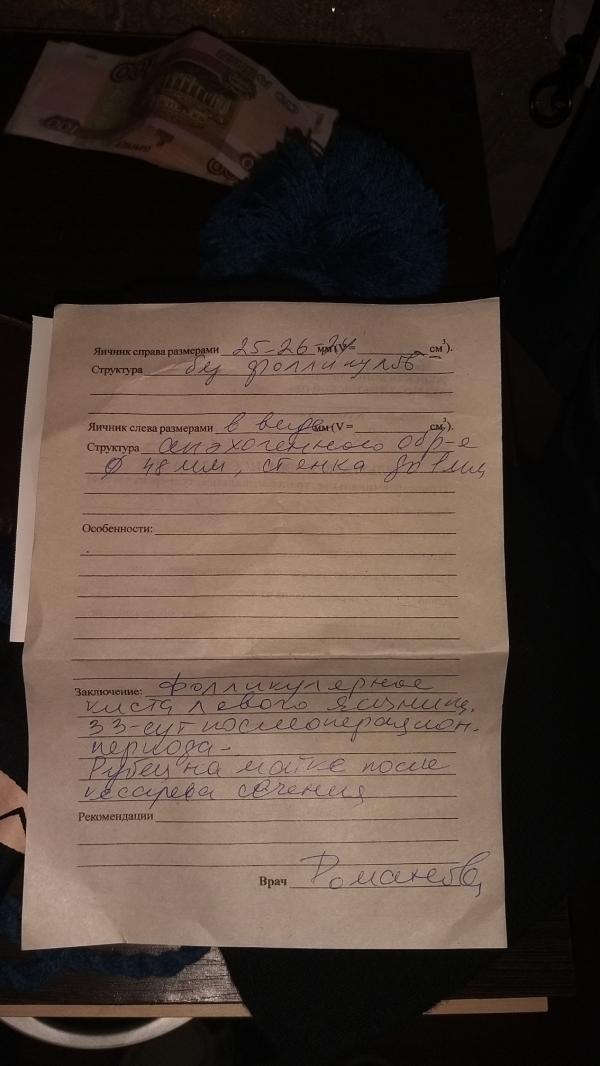 Яичник справа размерами 25-26-24 мм (V = см³).
Структура без фолликулов
Яичник слева размерами в виде мм (V = см³).
Структура анэхогенного обр-я
Ø 48 мм, стенка до 1 мм
Особенности:
Заключение: Фолликулярное
киста левого яичника.
33-сут послеоперацион.
периода-
Рубец на матке после
кесарева сечения
Рекомендации
Врач Романова
100